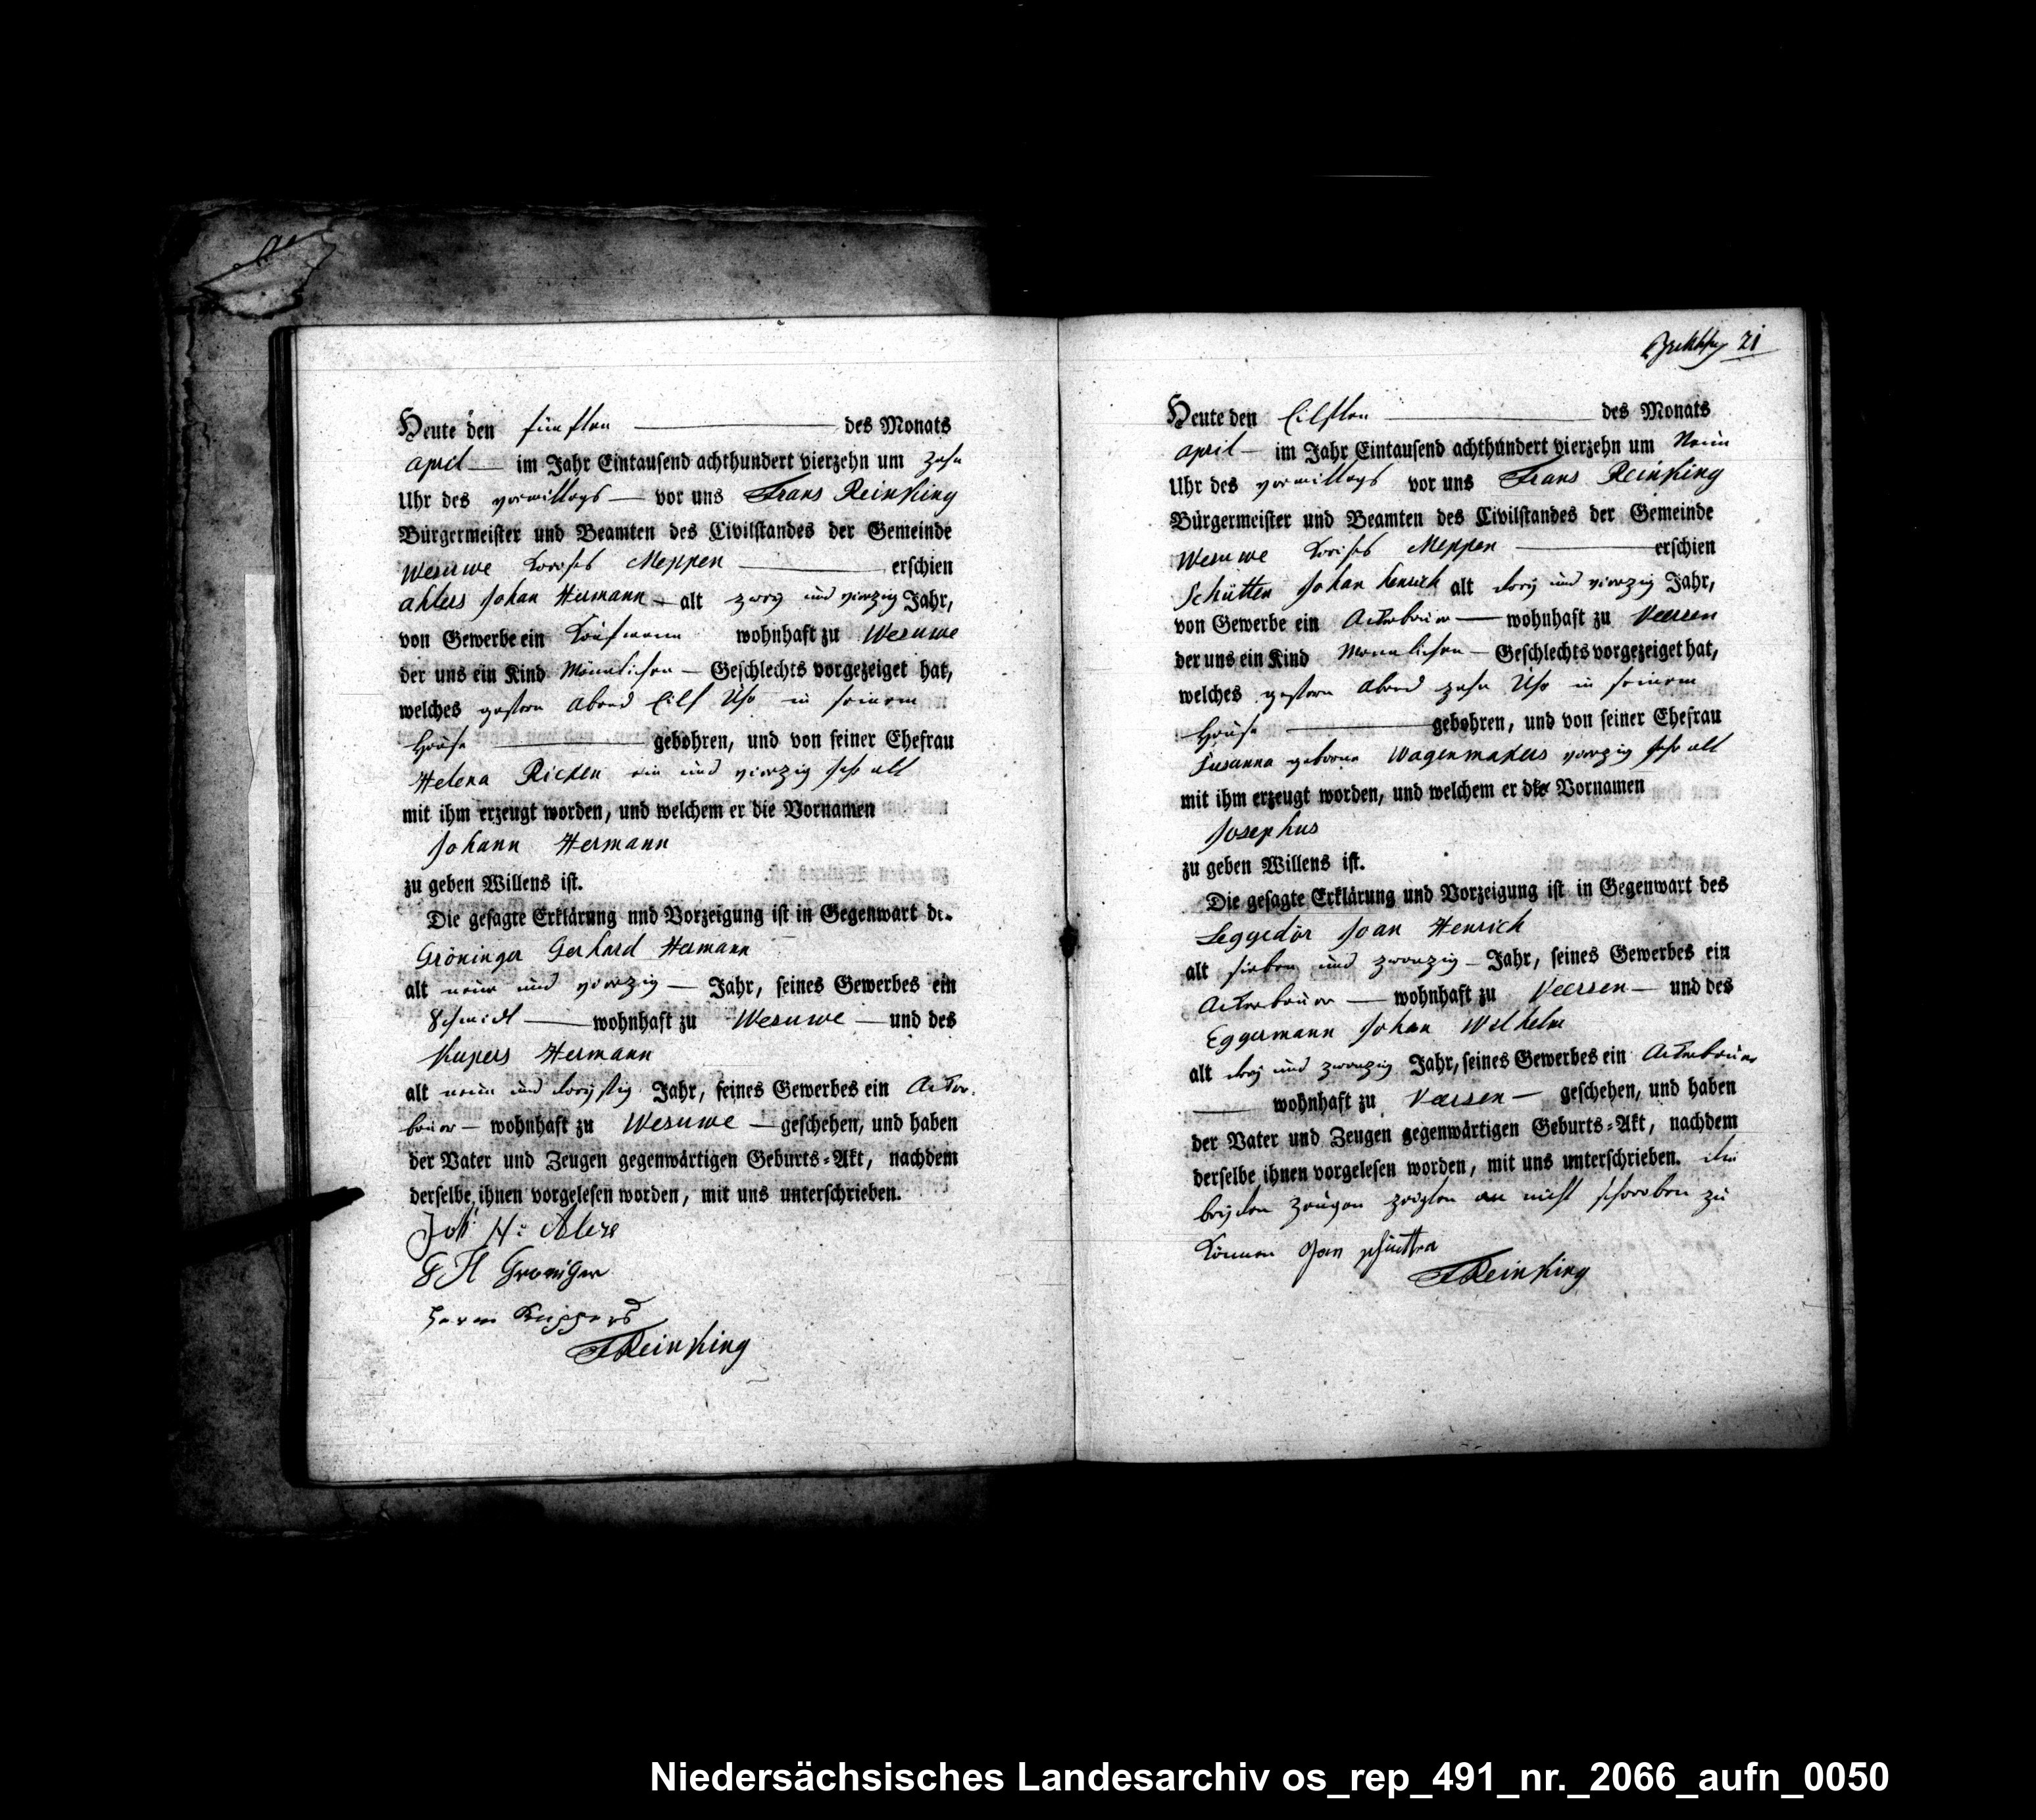 Heute den fünften des Monats
april im Jahr Eintausend achthundert vierzehn um zehn
Uhr des vormittags vor uns Frans Reinking
Bürgermeister und Beamten des Civilstandes der Gemeinde
Wesuwe Kreises Meppen erschien
Ahlers Johan Hermann alt zwey und vierzig Jahr,
von Gewerbe ein Kaufmann wohnhaft zu Wesuwe
der uns ein Kind Männlichen Geschlechts vorgezeiget hat,
welches gestern Abend Eilf Uhr in seinem
Hause gebohren, und von seiner Ehefrau
Helena Ricken ein und vierzig Jahr alt
mit ihm erzeugt worden, und welchem er die Vornamen
Johann Hermann
zu geben Willens ist.
Die gesagte Erklärung nnd Vorzeigung ist in Gegenwart de.
Gröninger Gerhard Hermann
alt neun und vierzig Jahr, seines Gewerbes ein
Schmidt wohnhaft zu Wesuwe und des
Kupers Hermann
alt neun und dreyßig Jahr, seines Gewerbes ein Acker-
bauer wohnhaft zu Wesuwe geschehen, und haben
der Vater und Zeugen gegenwärtigen Geburts-Akt, nachdem
derselbe ihnen vorgelesen worden, mit uns unterschrieben.
Joh H: Alers
G H Groniger
Herm Küppers
F Reinking
21
Heute den Eilften des Monats
april im Jahr Eintausend achthundert vierzehn um Neun
Uhr des vormittags vor uns Frans Reinking
Bürgermeister und Beamten des Civilstandes der Gemeinde
Wesuwe Kreises Meppen erschien
Schütten Johan henrich alt drey und vierzig Jahr,
von Gewerbe ein Ackerbauer wohnhaft zu Veersen
der uns ein Kind Mannlichen Geschlechts vorgezeiget hat,
welches gestern Abend zehn Uhr in seinem
Hause gebohren, und von seiner Ehefrau
Susanna geborne Wagenmakers vierzig Jahr alt
mit ihm erzeugt worden, und welchem er die Vornamen
Josephus
zu geben Willens ist.
Die gesagte Erklärung und Vorzeigung ist in Gegenwart des
Leggedör Joan Henrich
alt sieben und zwanzig Jahr, seines Gewerbes ein
Ackerbauer wohnhaft zu Veersen und des
Eggermann Johan Wilhelm
alt drey und zwanzig Jahr, seines Gewerbes ein Ackerbauer
wohnhaft zu Versen geschehen, und haben
der Vater und Zeugen gegenwärtigen Geburts-Akt, nachdem
derselbe ihnen vorgelesen worden, mit uns unterschrieben. die
beyden Zeugen zeigten an nicht schreiben zu
können Jan schütten
F Reinking
Niedersächsisches Landesarchiv os_rep_491_nr._2066_aufn_0050